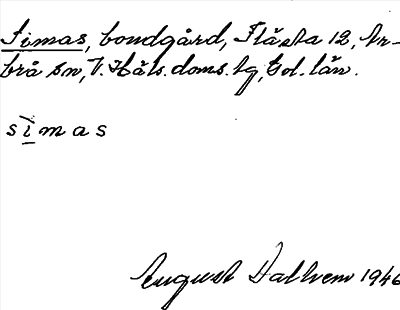 Simas, bondgård, Flästa 12, Ar-
brå sn, V. Häls. doms. tg, Gvl. län.
simas
August Hallvem 1946